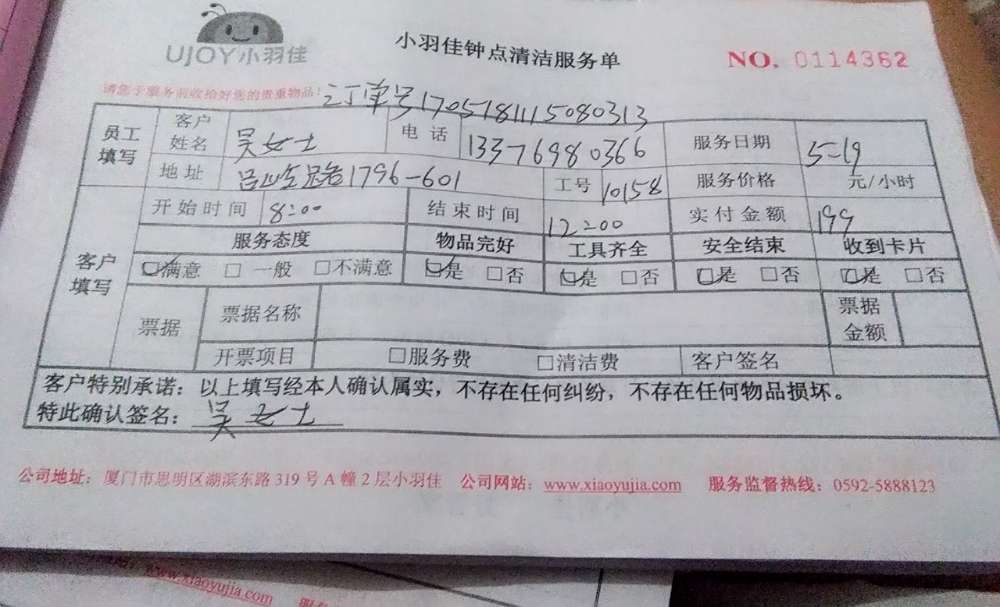 UJOY小羽佳
小羽佳钟点清洁服务单
NO. 0114362
请您于服务前收拾好您的贵重物品:
订单号17051811115080313
员工填写 客户姓名 吴女士 电话 13376980366 服务日期 5-19
地址 1796-601 工号 10158 服务价格 元/小时
开始时间 8:00 结束时间 12:00 实付金额 199
客户填写 服务态度 物品完好 工具齐全 安全结束 收到卡片
☑满意 □一般 □不满意 ☑是 □否 ☑是 □否 ☑是 □否 ☑是 □否
票据 票据名称 票据金额
开票项目 □服务费 □清洁费 客户签名
客户特别承诺:以上填写经本人确认属实,不存在任何纠纷,不存在任何物品损坏。
特此确认签名:吴女士
公司地址:厦门市思明区湖滨东路 319 号 A 幢 2 层小羽佳 公司网站:www.xiaoyujia.com 服务监督热线:0592-5888123
www.xiaoyujia.com